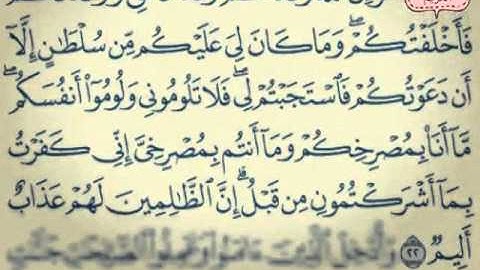 فَأَخْلَفْتُكُمْ ۖ وَمَا كَانَ لِىَ عَلَيْكُم مِّن سُلْطَٰنٍ إِلَّآ
أَن دَعَوْتُكُمْ فَٱسْتَجَبْتُمْ لِى ۖ فَلَا تَلُومُونِى وَلُومُوٓا۟ أَنفُسَكُم ۖ
مَّآ أَنَا۠ بِمُصْرِخِكُمْ وَمَآ أَنتُم بِمُصْرِخِىَّ ۖ إِنِّى كَفَرْتُ
بِمَآ أَشْرَكْتُمُونِ مِن قَبْلُ ۗ إِنَّ ٱلظَّٰلِمِينَ لَهُمْ عَذَابٌ
أَلِيمٌ ٢٢